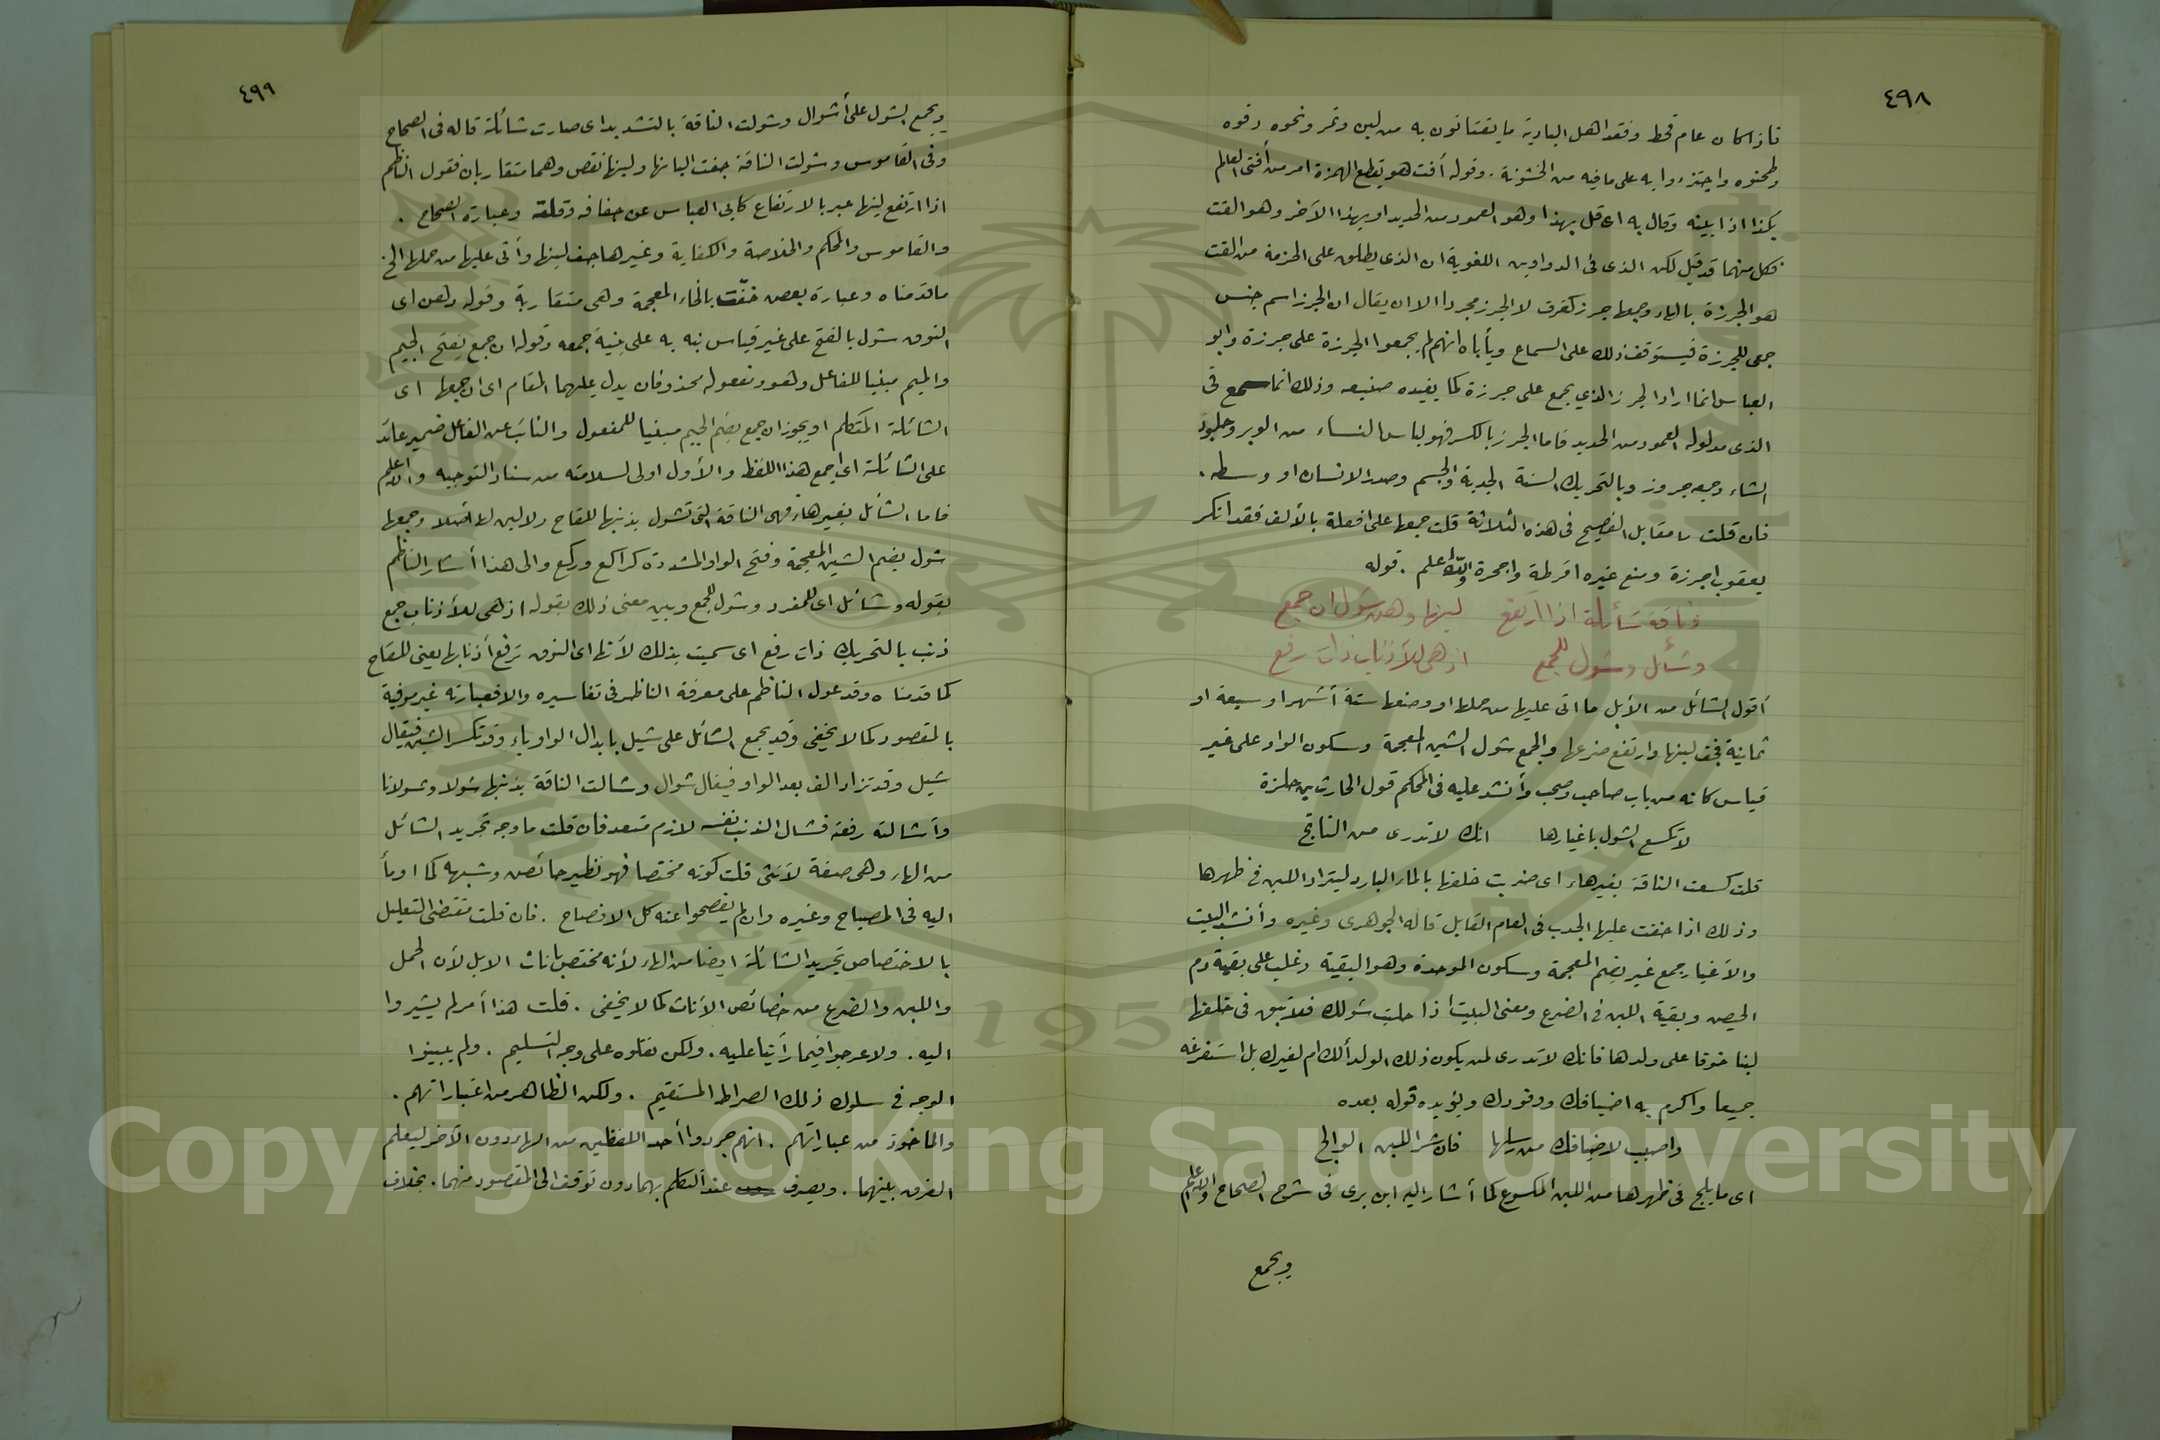 ٤٩٨
فاذا كان عام قحط وفقد اهل البادية ما يقتاتون به من لبن وتمر ونحوه دقوه
وطحنوه واجتزءوا به على ما فيه من الخشونة . وقوله أفت هو بقطع الهمزة امر من أفتى العالم
بكذا اذا بينه وقال به اى قل بهذا وهو العمود من الحديد او بهذا الآخر وهو القت
فكل منهما قد قيل لكن الذى فى الدواوين اللغوية ان الذى يطلق على الحزمة من القت
هو الجرزة بالهاء وجمعها جرز كغرف لا الجرز مجردا الا ان يقال ان الجرز اسم جنس
جمعى للجرزة فيستوقف ذلك على السماع ويأباه انهم لم يجمعوا الجرزة على جرزة وابو
العباس انما اراد الجرز الذي يجمع على جرزة كما يفيده صنيعه وذلك انما سمع فى
الذى مدلوله العمود من الحديد فاما الجرز بالكسر فهو لباس النساء من الوبر وجلود
الشاء وجمعه جروز وبالتحريك السنة الجدبة والجسم وصدر الانسان او وسطه .
فان قلت ما مقابل الفصيح فى هذه الثلاثة قلت جمعها على افعلة بالألف فقد انكر
يعقوب اجرزة ومنع غيره اقرطة واجحرة والله اعلم . قوله
وناقة شائلة اذا ارتفع لبنها وهن شول ان جمع
وشائل وشول للجمع اذ هى للأذناب ذات رفع
أقول الشائل من الأبل ما اتى عليها من حملها او وضعها ستة أشهر او سبعة او
ثمانية فجف لبنها وارتفع ضرعها والجمع شول الشين المعجمة وسكون الواو على غير
قياس كانه من باب صاحب وصحب وأنشد عليه فى المحكم قول الحارث بن حلزة
لا تكسع الشول باغبارها انك لا تدرى من الناتج
قلت كسعت الناقة بغيرهاء اى ضربت خلفها بالماء البارد ليتراد اللبن فى ظهرها
وذلك اذا خفت عليها الجدب فى العام القابل قاله الجوهرى وغيره وأنشد البيت
والاغبار جمع غبر بضم المعجمة وسكون الموحدة وهو البقية وغلب على بقية دم
الحيض وبقية اللبن فى الضرع ومعنى البيت اذا حلبت شولك فلا تبق فى خلفها
لبنا خوفا على ولدها فانك لا تدرى لمن يكون ذلك الولد ألك ام لغيرك بل استفرغه
جميعا واكرم به اضيافك ووفودك ويؤيده قوله بعده
واصبب لاضيافك من رسلها فان شر اللبن الوالج
اى ما يلج فى ظهرها من اللبن المكسوع كما أشار اليه ابن برى فى شرح الصحاح والله اعلم
ويجمع
٤٩٩
ويجمع الشول على أشوال وشولت الناقة بالتشديد اى صارت شائلة قاله فى الصحاح
وفى القاموس وشولت الناقة جفت البانها ولبنها نقص وهما متقاربان فقول الناظم
اذا ارتفع لبنها عبر بالارتفاع كأبى العباس عن جفافه وقلته وعبارة الصحاح .
والقاموس والمحكم والخلاصة والكفاية وغيرها جف لبنها وأتى عليها من حملها الخ .
ما قدمناه وعبارة بعض خفت بالخاء المعجمة وهى متقاربة وقوله وهن اى
النوق شول بالفتح على غير قياس نبه به على بنية جمعه وقوله ان جمع بفتح الجيم
والميم مبنيا للفاعل وهو ومفعوله محذوفان يدل عليهما المقام اى ان جمعها اى
الشائلة المتكلم او يجوز ان جمع بضم الجيم مبنيا للمفعول والنائب عن الفاعل ضمير عائد
على الشائلة اى جمع هذا اللفظ والأول اولى لسلامته من سناد التوجيه والله اعلم
فاما الشائل بغير هاء فهى الناقة التى تشول بذنبها للقاح ولا لبن لها أصلا وجمعها
شول بضم الشين المعجمة وفتح الواو المشددة كراكع وركع والى هذا أشار الناظم
بقوله وشائل اى للمفرد وشول للجمع وبين معنى ذلك بقوله اذ هى للأذناب جمع
ذنب بالتحريك ذات رفع اى سميت بذلك لأنها اى النوق ترفع أذنابها يعنى للقاح
كما قدمناه وقد عول الناظم على معرفة الناظر فى تفاسيره والا فعبارته غير موفية
بالمقصود كما لا يخفى وقد يجمع الشائل على شيل بابدال الواو ياء وقد تكسر الشين فيقال
شيل وقد تزاد الف بعد الواو فيقال شوال وشالت الناقة بذنبها شولا وشولانا
وأشالته رفعته فشال الذنب نفسه لازم متعد فان قلت ما وجه تجريد الشائل
من الهاء وهى صفة لأنثى قلت كونه مختصا فهو نظير حائض وشبهه كما اومأ
اليه فى المصباح وغيره وان لم يفصحوا عنه كل الافصاح . فان قلت مقتضى التعليل
بالاختصاص تجريد الشائلة ايضا من الهاء لأنه مختص باناث الابل لأن الحمل
واللبن والضرع من خصائص الأناث كما لا يخفى . قلت هذا أمر لم يشيروا
اليه . ولا عرجوا فيما رأينا عليه . ولكن نقلوه على وجه التسليم . ولم يبينوا
الوجه فى سلوك ذلك الصراط المستقيم . ولكن الظاهر من اعتباراتهم .
والماخوذ من عباراتهم . انهم جردوا أحد اللفظين من الهاء دون الآخر ليعلم
الفرق بينهما . ويعرف عند التكلم بهما دون توقف الى المقصود منهما . بخلاف
Copyright © King Saud University
1957